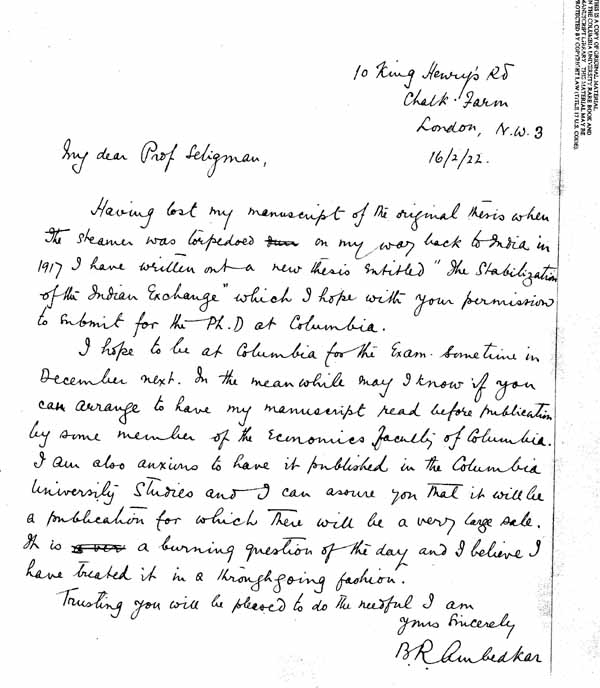 THIS IS A COPY OF ORIGINAL MATERIAL
IN THE COLUMBIA UNIVERSITY RARE BOOK AND
MANUSCRIPT LIBRARY. THIS MATERIAL MAY BE
PROTECTED BY COPYRIGHT LAW (TITLE 17 U.S. CODE)
10 King Henry's Rd
Chalk Farm
London, N.W. 3
16/2/22.
My dear Prof Seligman,
Having lost my manuscript of the original thesis when
the steamer was torpedoed on my way back to India in
1917 I have written out a new thesis entitled "The Stabilization
of the Indian Exchange" which I hope with your permission
to submit for the Ph.D at Columbia.
I hope to be at Columbia for the Exam. sometime in
December next. In the meanwhile may I know if you
can arrange to have my manuscript read before publication
by some member of the Economics faculty of Columbia.
I am also anxious to have it published in the Columbia
University Studies and I can assure you that it will be
a publication for which there will be a very large sale.
It is a burning question of the day and I believe I
have treated it in a throughgoing fashion.
Trusting you will be pleased to do the needful I am
yours Sincerely
B. R. Ambedkar